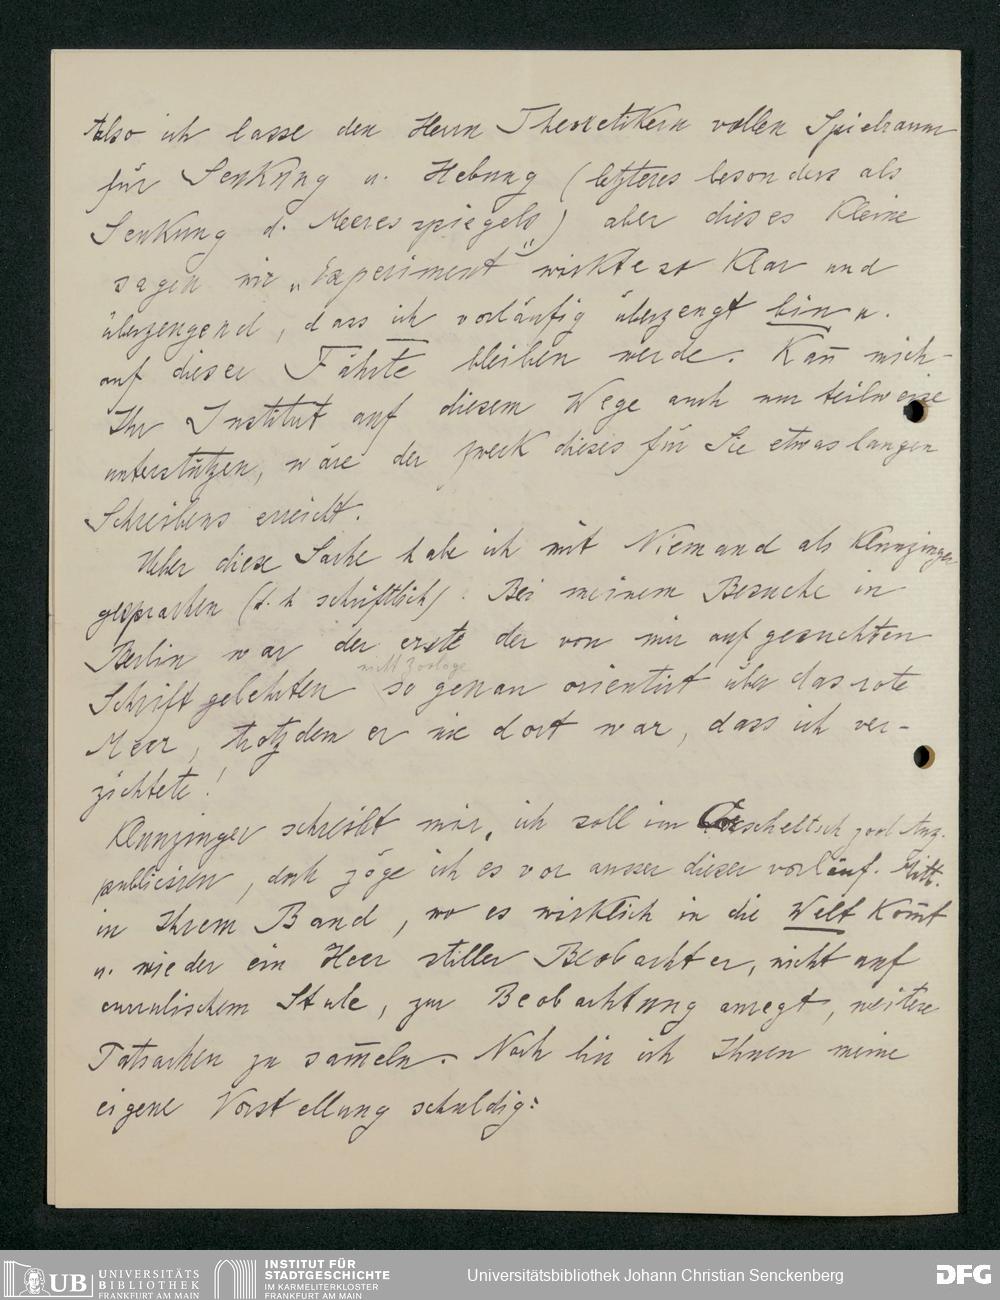 Also ich lasse den Herrn Theoretikern vollen Spielraum
für Senkung u. Hebung (letzteres besonders als
Senkung d. Meeresspiegels) aber dieses kleine
sagen wir „Experiment" wirkte so klar und
überzeugend, dass ich vorläufig überzeugt bin u.
auf dieser Fährte bleiben werde. Kan̅ mich
Ihr Institut auf diesem Wege auch nur teilweise
unterstützen, wäre der Zweck dieses für Sie etwas langen
Schreibens erreicht.
Ueber diese Sache habe ich mit Niemand als Klunzinger
gesprochen (d. h. schriftlich). Bei meinem Besuche in
Berlin war der erste der von mir aufgesuchten
nicht Zoologe
Schriftgelehrten so genau orientirt über das rote
Meer, trotzdem er nie dort war, dass ich ver-
zichtete!
Klunzinger schreibt mir, ich soll im Korscheltsch zool Anz.
publiciren, doch zöge ich es vor ausser dieser vorläuf. Mitt.
in Ihrem Band, wo es wirklich in die Welt kom̅t
u. wieder ein Heer stiller Beobachter, nicht auf
curulischem Stule, zur Beobachtung anregt, weitere
Tatsachen zu sam̅eln. Noch bin ich Ihnen meine
eigene Vorstellung schuldig:
UB UNIVERSITÄTS
BIBLIOTHEK
FRANKFURT AM MAIN
INSTITUT FÜR
STADTGESCHICHTE
IM KARMELITERKLOSTER
FRANKFURT AM MAIN
Universitätsbibliothek Johann Christian Senckenberg
DFG